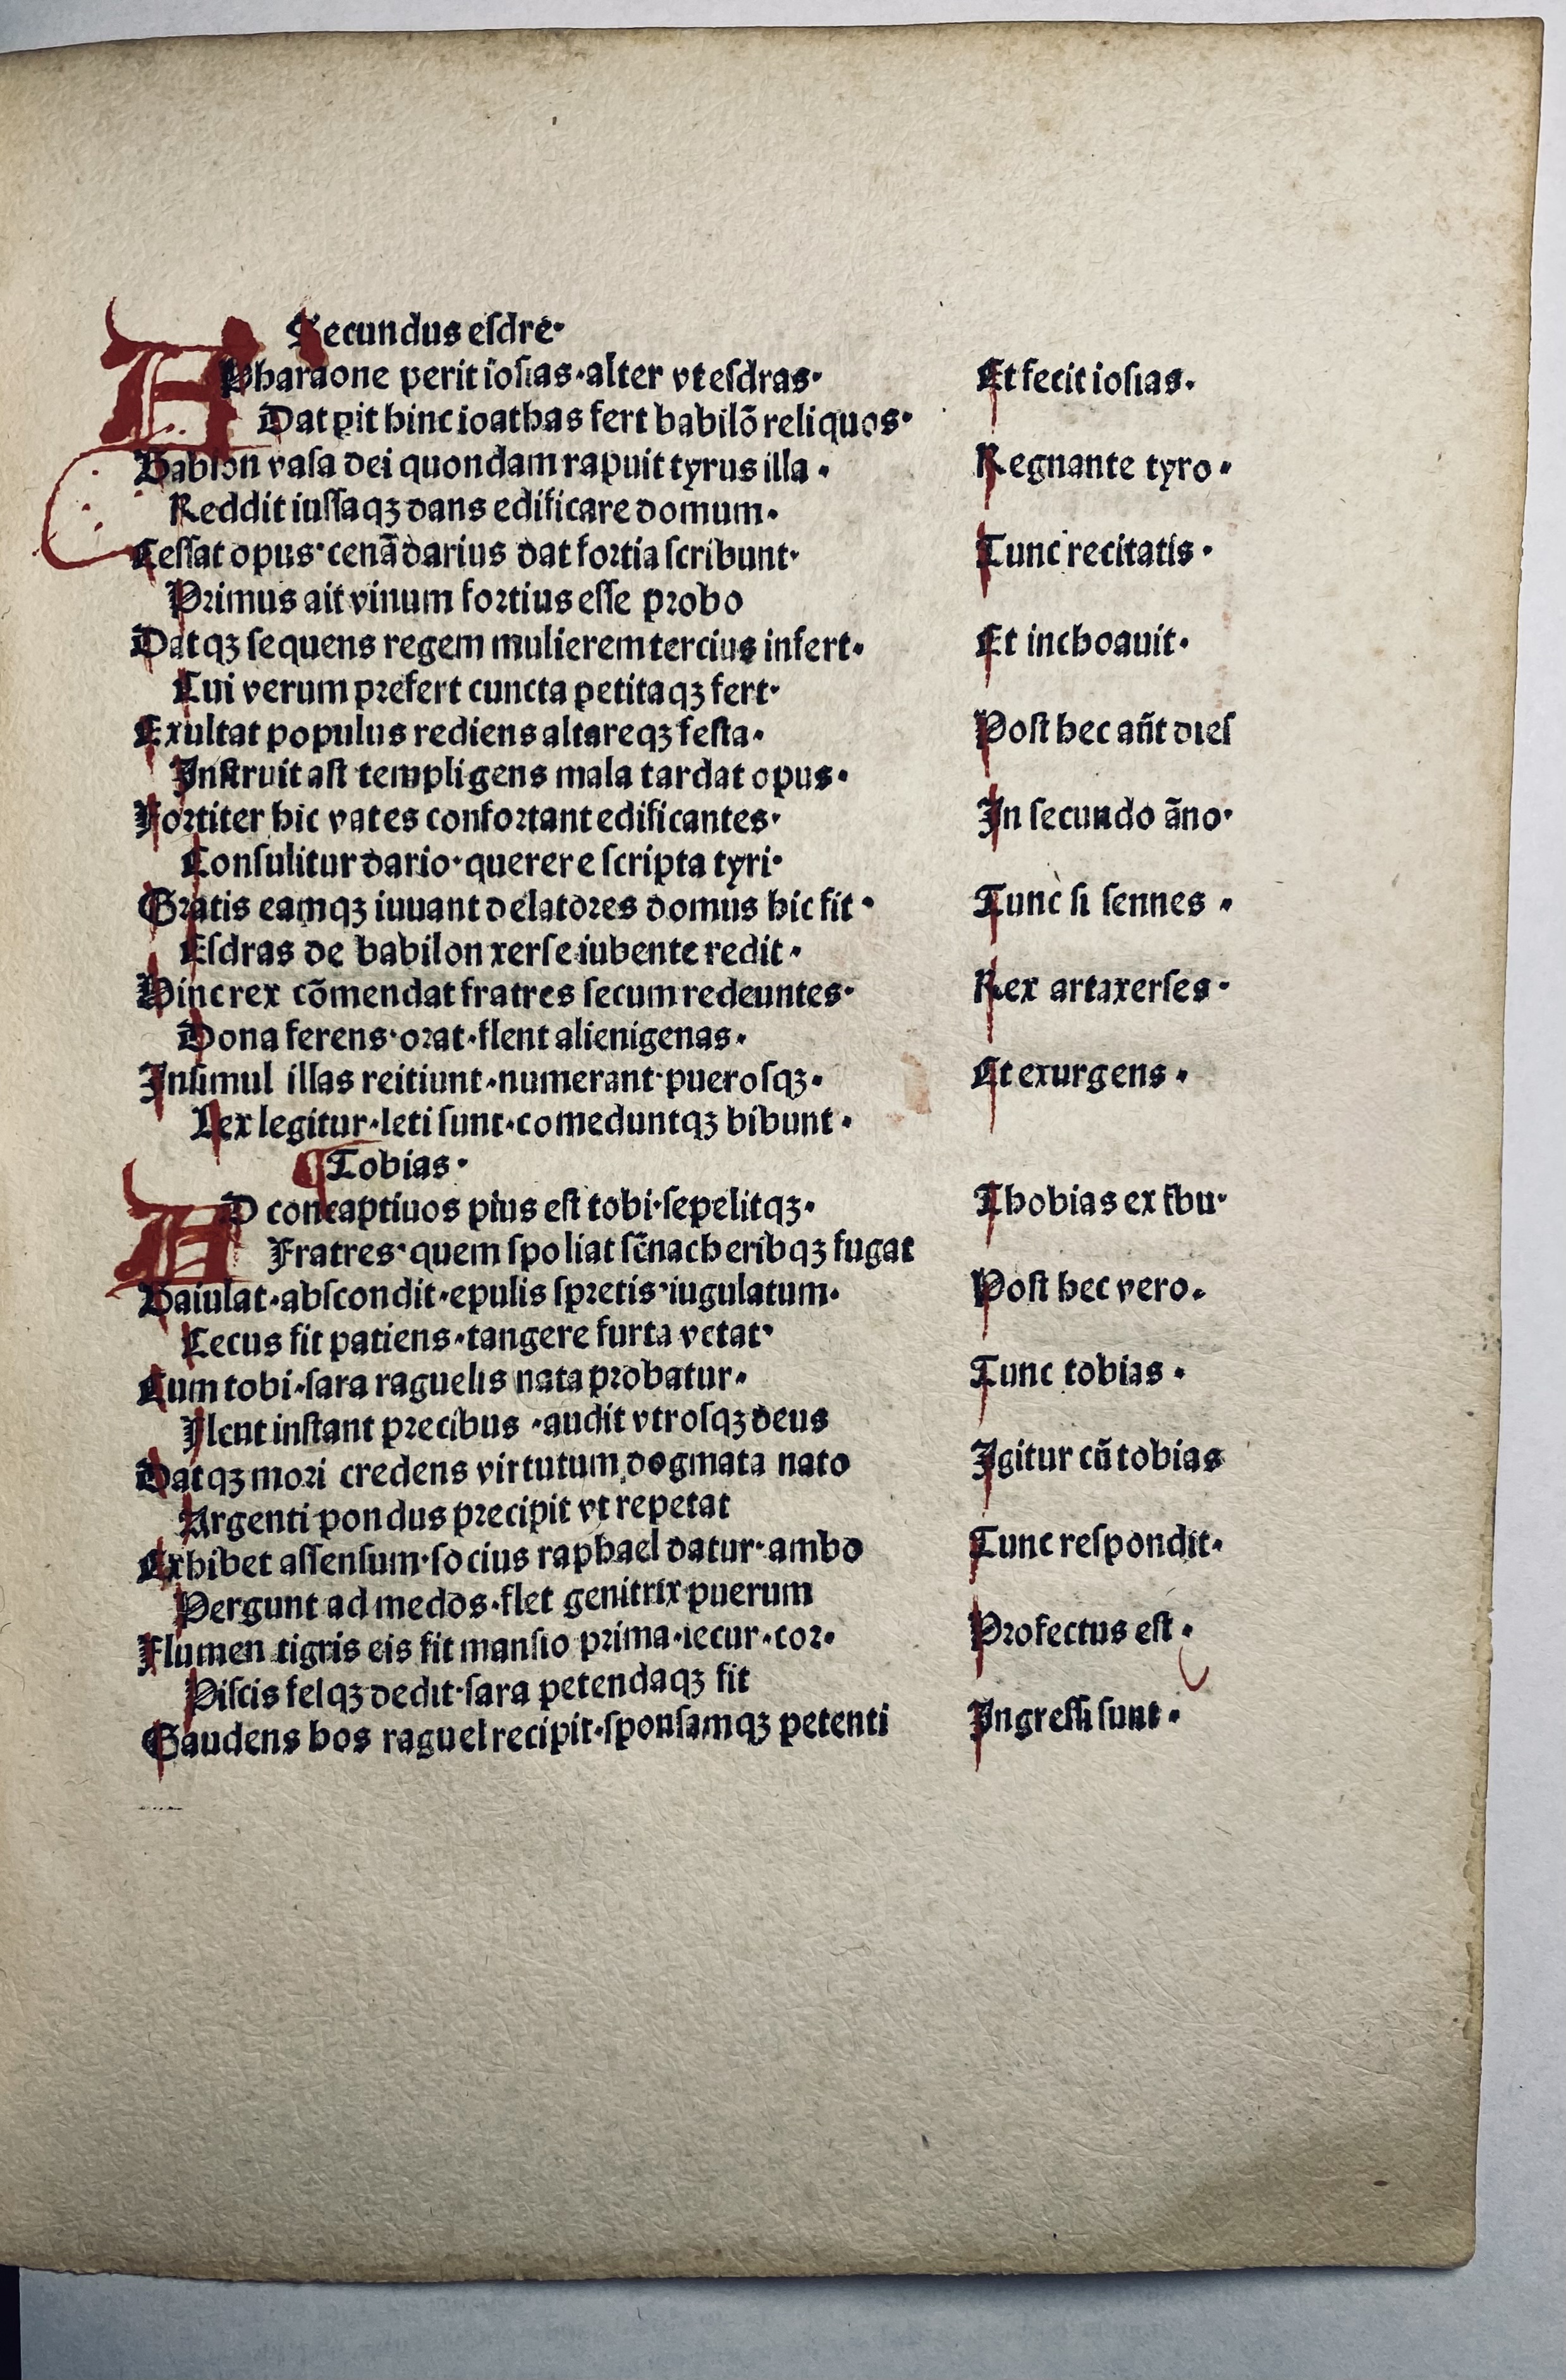 Secundus eſdre·
A Pharaone perit ioſias·alter vt eſdras· Et fecit ioſias.
Dat pit hinc ioathas fert babilō reliquos·
Babilon vaſa dei quondam rapuit tyrus illa · Regnante tyro ·
Reddit iuſſaqꝫ dans edificare domum·
Ceſſat opus·cenā darius dat fortia ſcribunt· Tunc recitatis ·
Primus ait vinum fortius eſſe probo
Datqꝫ ſequens regem mulierem tercius infert· Et inchoauit·
Cui verum prefert cuncta petitaqꝫ fert·
Exultat populus rediens altareqꝫ feſta· Poſt hec añt dieſ
Inſtruit aſt templi gens mala tardat opus·
Fortiter hic vates confortant edificantes· In ſecundo āno·
Conſulitur dario·querere ſcripta tyri·
Gratis eamqꝫ iuuant delatores domus hic fit · Tunc ſi ſennes ·
Eſdras de babilon xerſe iubente redit·
Hinc rex cōmendat fratres ſecum redeuntes· Rex artaxerſes ·
Dona ferens·orat·flent alienigenas·
Inſimul illas reitiunt·numerant·pueroſqꝫ· Et exurgens ·
Lex legitur·leti ſunt·comeduntqꝫ bibunt ·
¶ Tobias ·
AD concaptiuos pius eſt tobi·ſepelitqꝫ· Thobias ex tbu·
Fratres·quem ſpoliat ſēnacheribqꝫ fugat
Baiulat·abſcondit·epulis ſpretis·iugulatum· Poſt hec vero.
Cecus fit patiens·tangere furta vetat·
Cum tobi·ſara raguelis nata probatur· Tunc tobias ·
Flent inſtant precibus ·audit vtroſqꝫ deus
Datqꝫ mori credens virtutum dogmata nato Igitur cū tobias
Argenti pondus precipit vt repetat
Exhibet aſſenſum·ſocius raphael datur·ambo Tunc reſpondit·
Pergunt ad medos·flet genitrix puerum
Flumen tigris eis fit manſio prima·iecur·cor· Profectus eſt ·
Piſcis felqꝫ dedit·ſara petendaqꝫ fit
Gaudens hos raguel recipit·ſponſamqꝫ petenti Ingreſſi ſunt ·